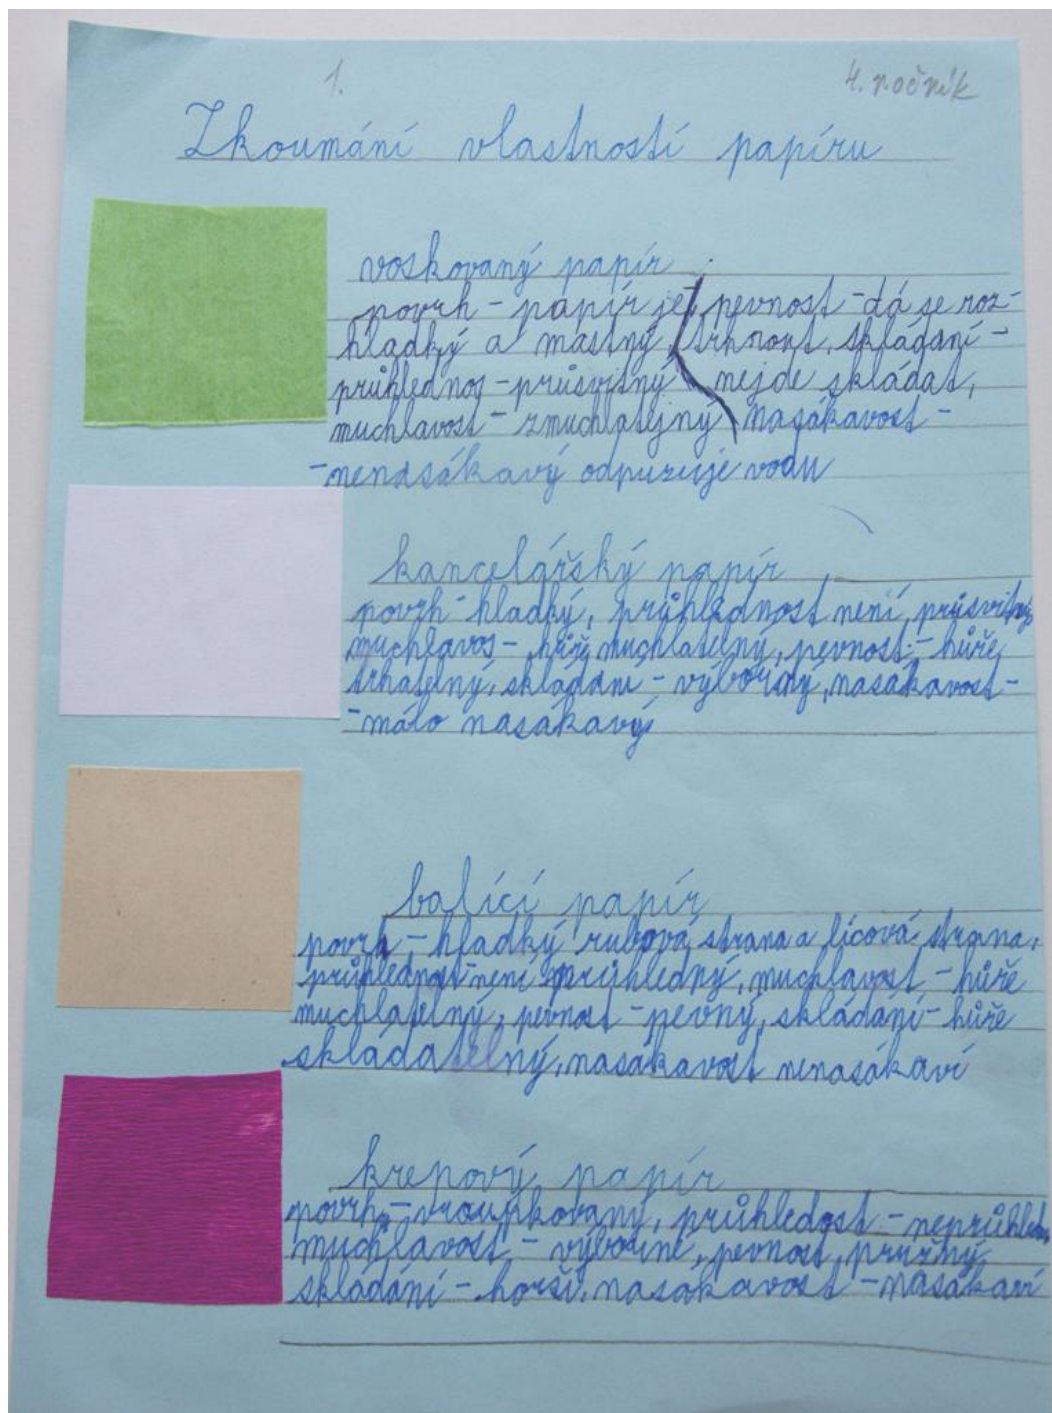 1.
4. ročník
Zkoumání vlastností papíru
voskovaný papír
povrh - papír je pevnost - dá se roz-
hladký a mastný trhnout, skládaní -
průhlednos - průsvitný nejde skládat,
muchlavost - zmuchlatejný Nasákavost -
- nenasákavý odpuzuje vodu
kancelářský papír
povrh - hladký, průhlednost není průsvitný
muchlavos - hůře muchlatelný, pevnost - hůře
trhatelný, skládání - výborný, nasákavost -
- málo nasákavý
balící papír
povrh - hladký rubová strana a lícová strana,
průhlednost není průhledný, muchlavost - hůře
muchlatelný, pevnost - pevný, skládání - hůře
skládatelný, nasákavost nenasákaví
krepový papír
povrh - vroupkovaný, průhledost - neprůhledn
muchlavost - výborné, pevnost, pružný
skládání - horší, nasákavost - nasákaví